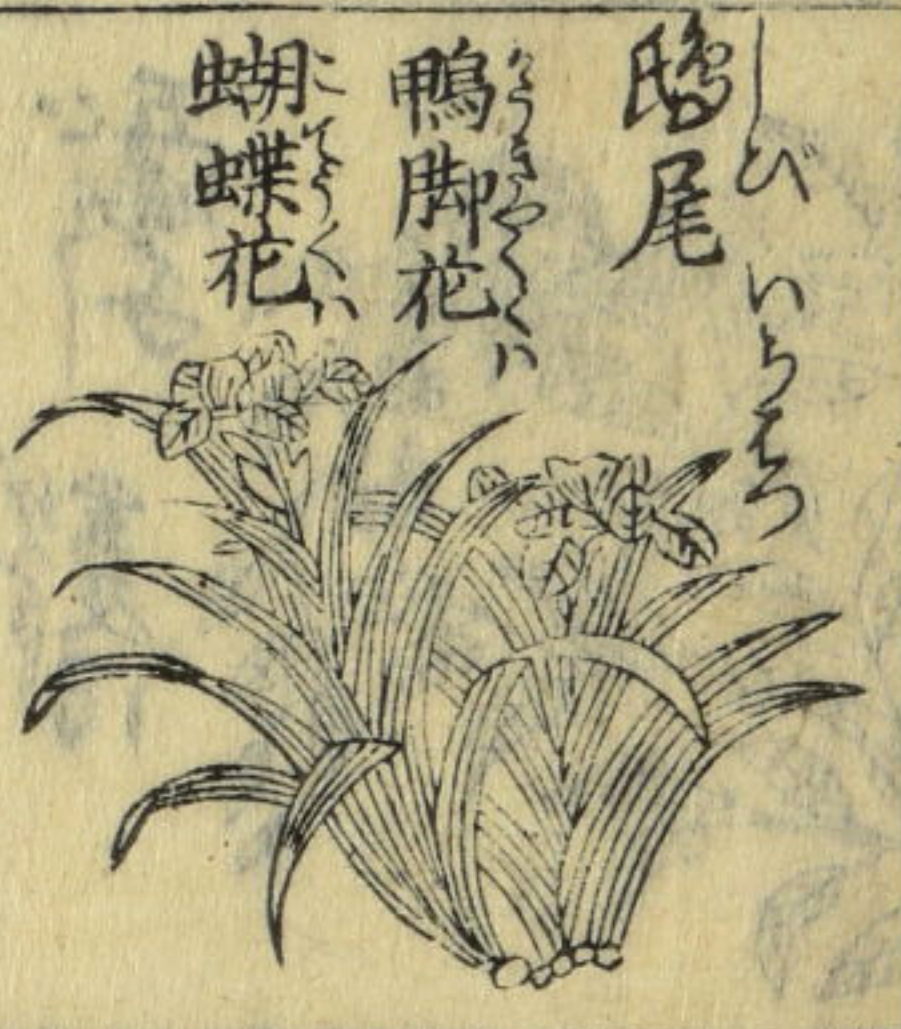 しび いちはつ
鴟尾
あうきやくくハ
鴨脚花
こてうくハ
蝴蝶花